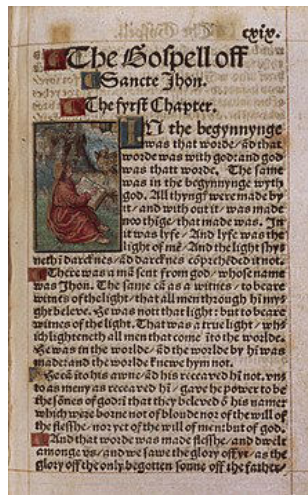 cxix.
The Gospell off
Sancte Jhon.
The fyrst Chapter.
IN the begynnynge
was that worde/ ād that
worde was with god: and god
was thatt worde. The same
was in the begynnynge wyth
god. All thyngs were made by
it/ and with out it/ was made
noo thīge/ that made was. In
it was lyfe/ And lyfe was the
light of mē/ And the light shy=
neth ī darcknes/ ād darcknes cōprehēded it not.
There was a mā sent from god/ whose name
was Jhon. The same cā as a witnes/ to beare
witnes of the light/ that all men through hī my=
ght beleve. He was nott that light: but to beare
witnes of the light. That was a true light/ whi=
ch lighteneth all men that come ito the worlde.
He was in the worlde/ ād the worlde by hī was
made: and the worlde knewe hym not.
He cā īto his awne/ ād his receaved hī not. vn=
to as meny as receaved hī/ gave he power to be
the sōnes of god: ī that they beleved ō his name:
which were borne not of bloude nor of the will of
the flesshe/ nor yet of the will of men: but of god.
And that worde was made flesshe/ and dwelt
amonge vs/ and we sawe the glory off yt/ as the
glory off the only begotten sonne off the father/